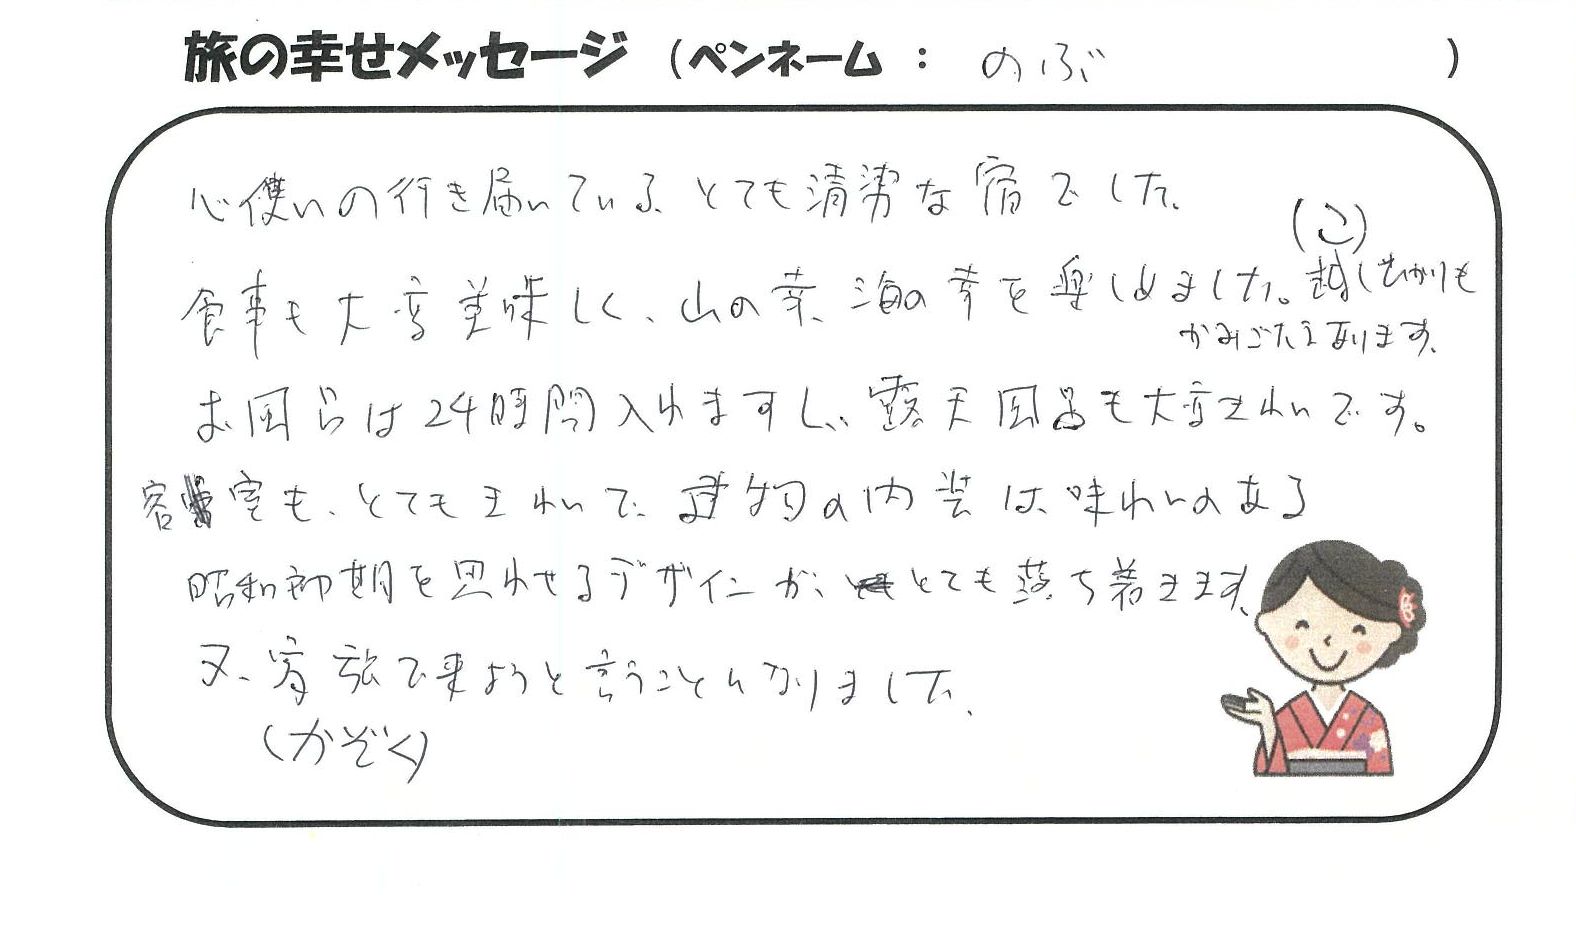 旅の幸せメッセージ (ペンネーム : のぶ )
心使いの行き届いている、とても清潔な宿でした。
(こ)
食事も大変美味しく、山の幸、海の幸を楽しめました。越しひかりも
かみごたえあります。
お風呂は24時間入れますし、露天風呂も大変きれいです。
客室も、とてもきれいで、建物の内装は、味わいのある
昭和初期を思わせるデザインが、とても落ち着きます。
又、家族で来ようと言うことになりました。
(かぞく)